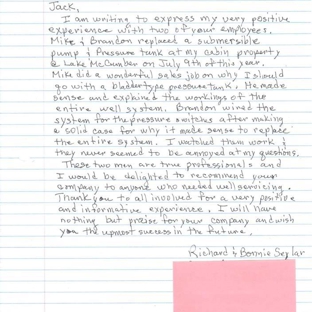 Jack,
I am writing to express my very positive
experience with two of your employees.
Mike & Brandon replaced a submersible
pump & Pressure tank at my cabin property
@ Lake McCumber on July 9th of this year.
Mike did a wonderful sales job on why I should
go with a bladder type pressure tank. He made
sense and explained the workings of the
entire well system. Brandon wired the
system for the pressure switches after making
a solid case for why it made sense to replace
the entire system. I watched them work &
they never seemed to be annoyed at my questions.
These two men are true professionals and
I would be delighted to recommend your
company to anyone who needed well servicing.
Thank you to all involved for a very positive
and informative experience. I will have
nothing but praise for your company and wish
you the upmost success in the future.
Richard & Bonnie